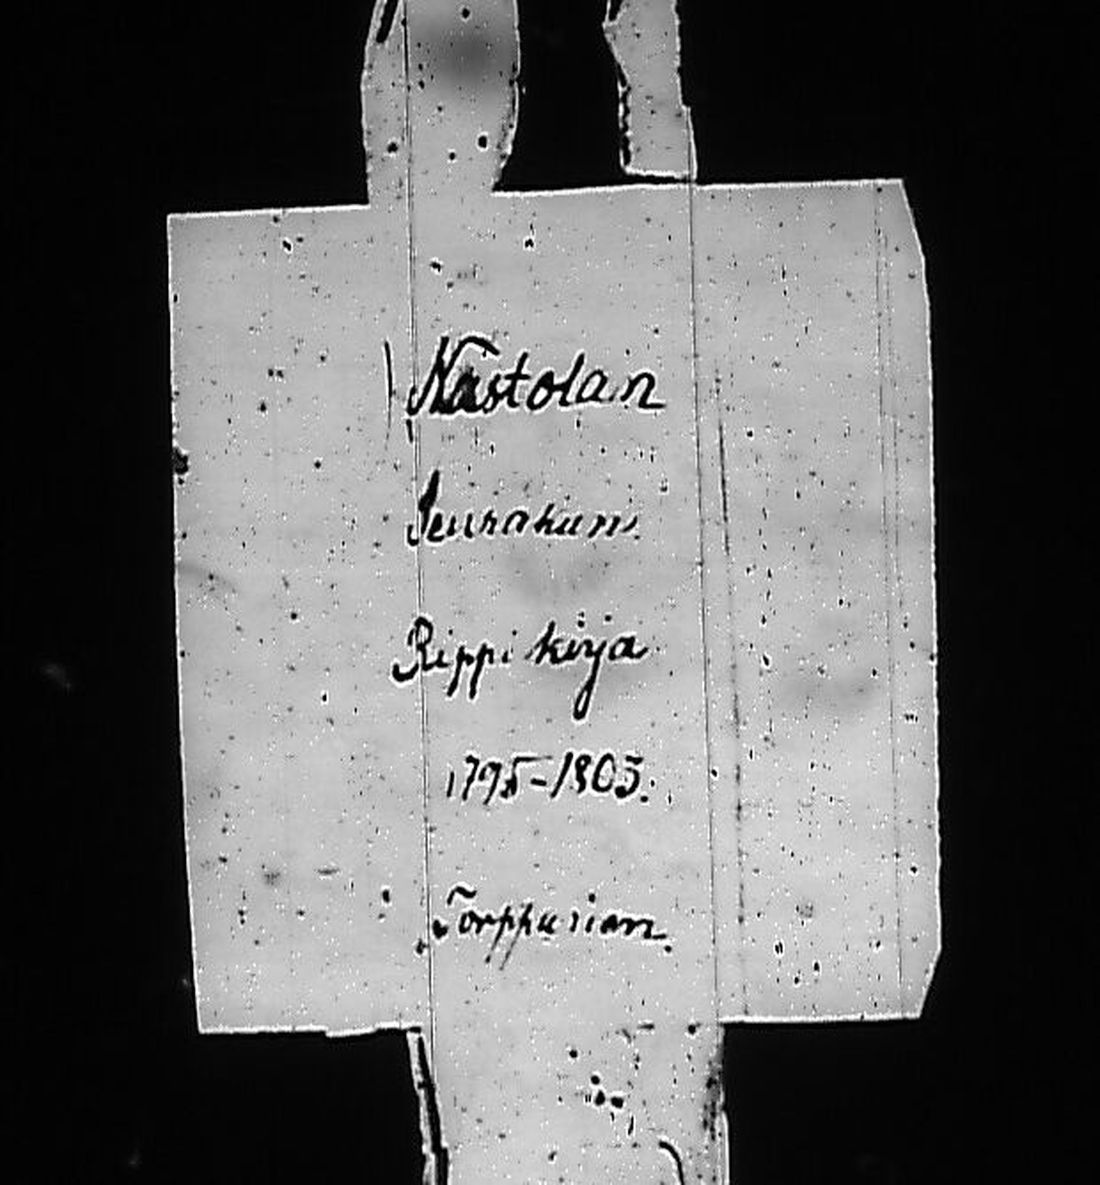 Nastolan
Seurakun.
Rippikirja
1795-1805.
Torpparian.